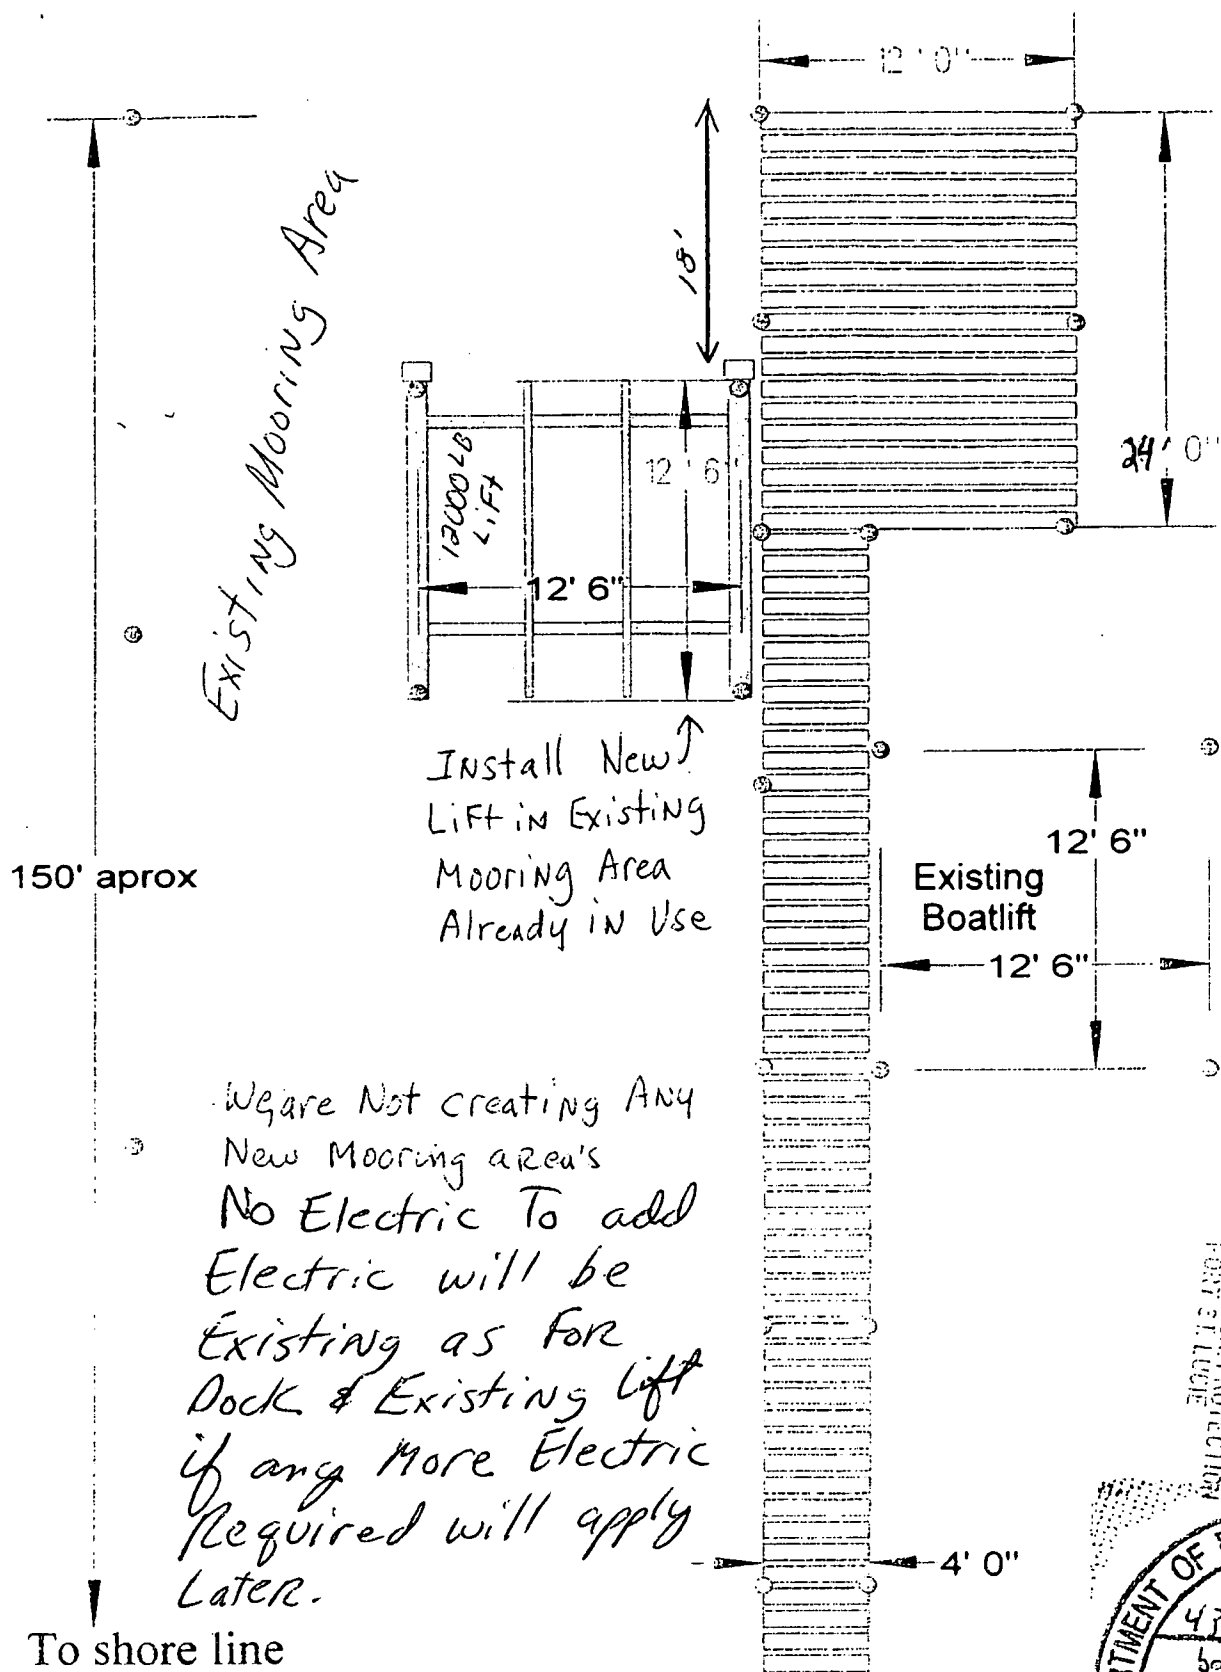 12' 0"
18'
Existing Mooring Area
24' 0"
12000 LB
LiFt
12' 6"
12' 6"
Install New
LiFt iN Existing
Mooring Area
Already iN Use
12' 6"
Existing
Boatlift
12' 6"
150' aprox
We are Not creating ANy
New Mooring aRea's
No Electric To add
Electric will be
Existing as FoR
Dock & Existing lift
if any More Electric
Required will apply
LateR.
4' 0"
To shore line
PORT ST. LUCIE